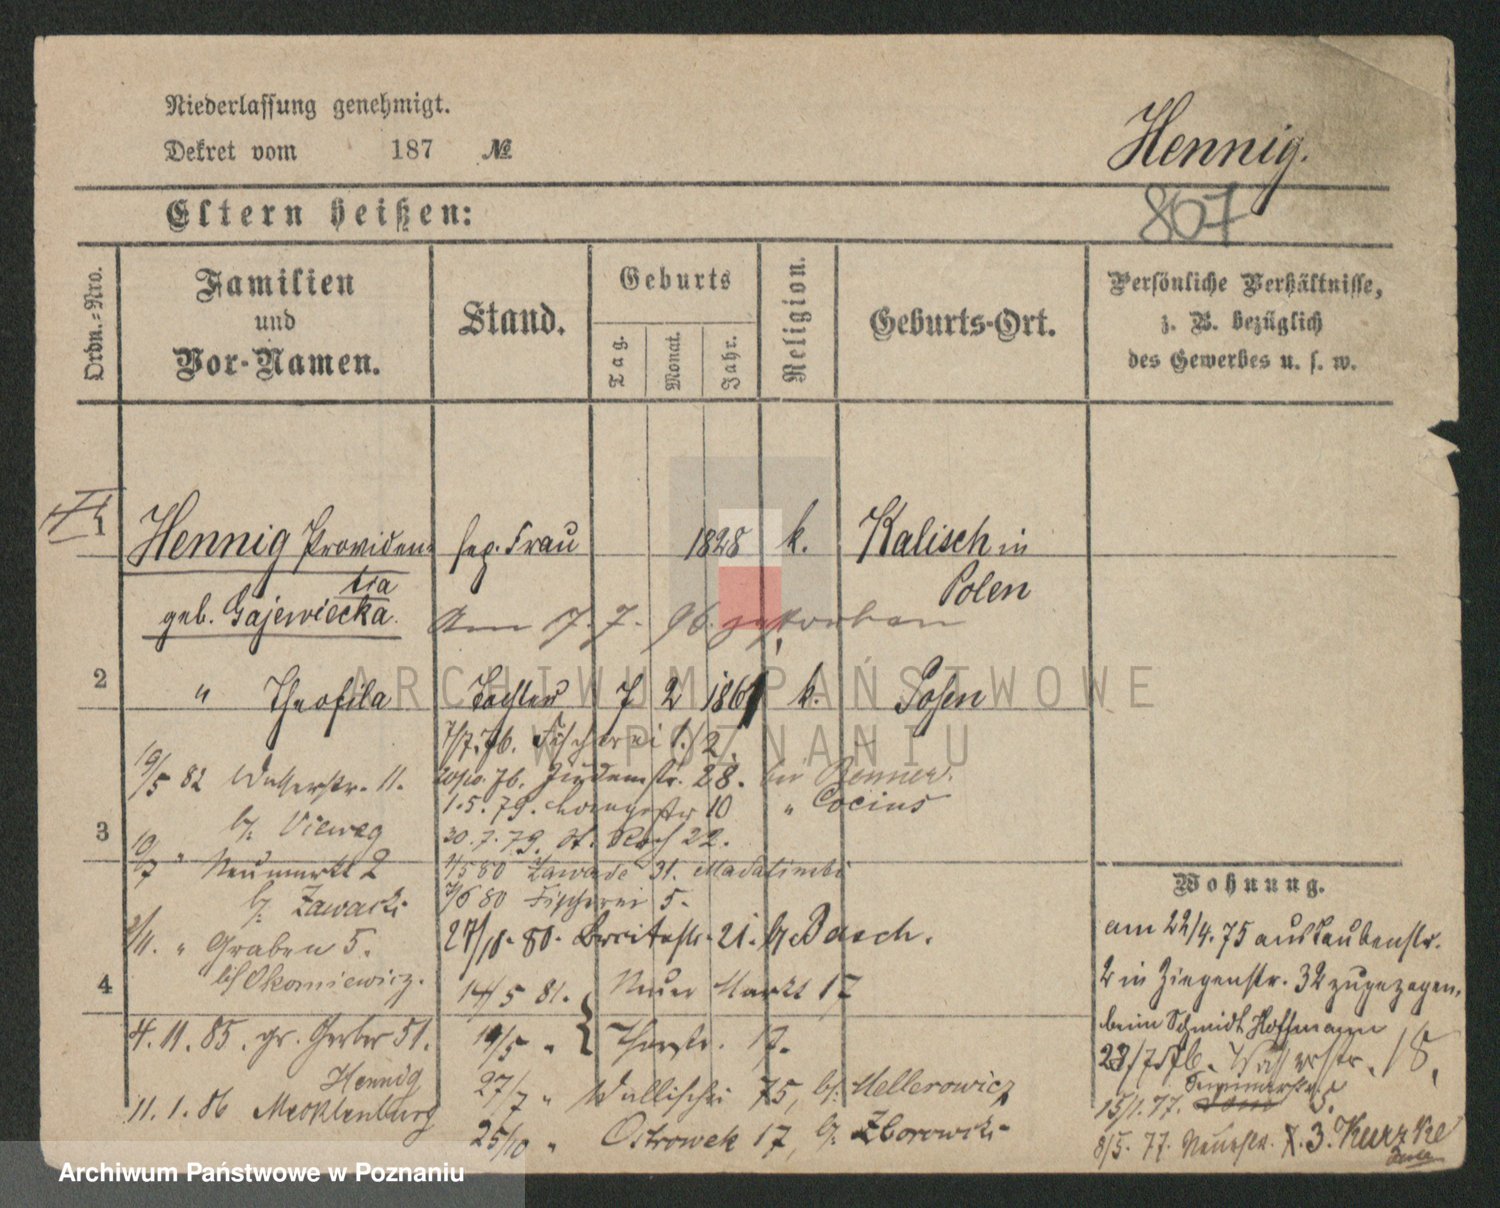 Niederlassung genehmigt.
Dekret vom 187 №
Hennig.
807
Eltern heißen:
Ordn.-Nro.
Familien
und
Vor-Namen.
Stand.
Geburts
Tag.
Monat.
Jahr.
Religion.
Geburts-Ort.
Persönliche Verhältnisse,
z. B. bezüglich
des Gewerbes u. s. w.
1 Hennig Providen- sep. Frau 1828 k. Kalisch in
tia Polen
geb. Gajewiecka.
Am 7. 7. 96. gestorben
2 " Theofila Tochter 7 2 1861 k. Posen
7/7. 76. Fischerei 1/2.
19/5 82 Wasserstr. 11.
20/10. 76. 28. bei
1.5.79. 10 " Cocius
b/. Vieweg
3
30.7.79. St. Roch 22.
10/7 " Neumarkt 2
4/5 80 Zawade 31.
b/. Zawacki
7/6 80 Fischerei 5.
2/11. " Graben 5.
27/10. 80. Breitestr. 21. b/. Basch.
bei Okoniewicz.
4
14/5 81. Neuer Markt 17
4. 11. 85. gr. Gerber 51.
19/5 " Thorstr. 17.
Hennig
27/7 " Wallischei 75, b/. Mellerowicz
11. 1. 86 Mecklenburg
25/10 " Ostrowek 17, b/. Zborowski
Wohnung.
am 22/4. 75 aus Taubenstr.
2 in Ziegenstr. 32 zugezogen,
beim Schmidt Hoffmann
23/7 76. Wasserstr. 18.
15/1. 77. 5.
8/5. 77. Neuestr. 3. Kurzke
ARCHIWUM PAŃSTWOWE
W POZNANIU
Archiwum Państwowe w Poznaniu